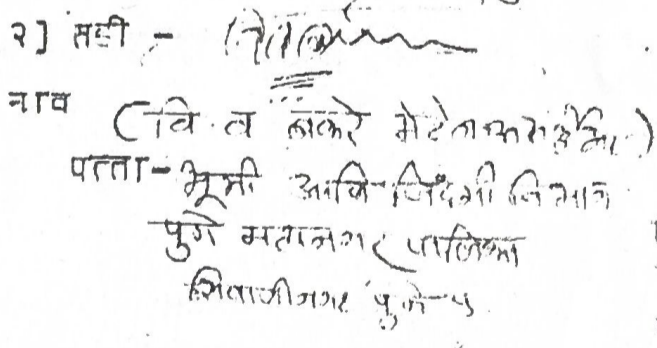 २] सही -
नाव
(वि. व. ठाकरे
पत्ता - भूमी आणि जिंदगी विभाग
पुणे महानगर पालिका
शिवाजीनगर पुणे ५